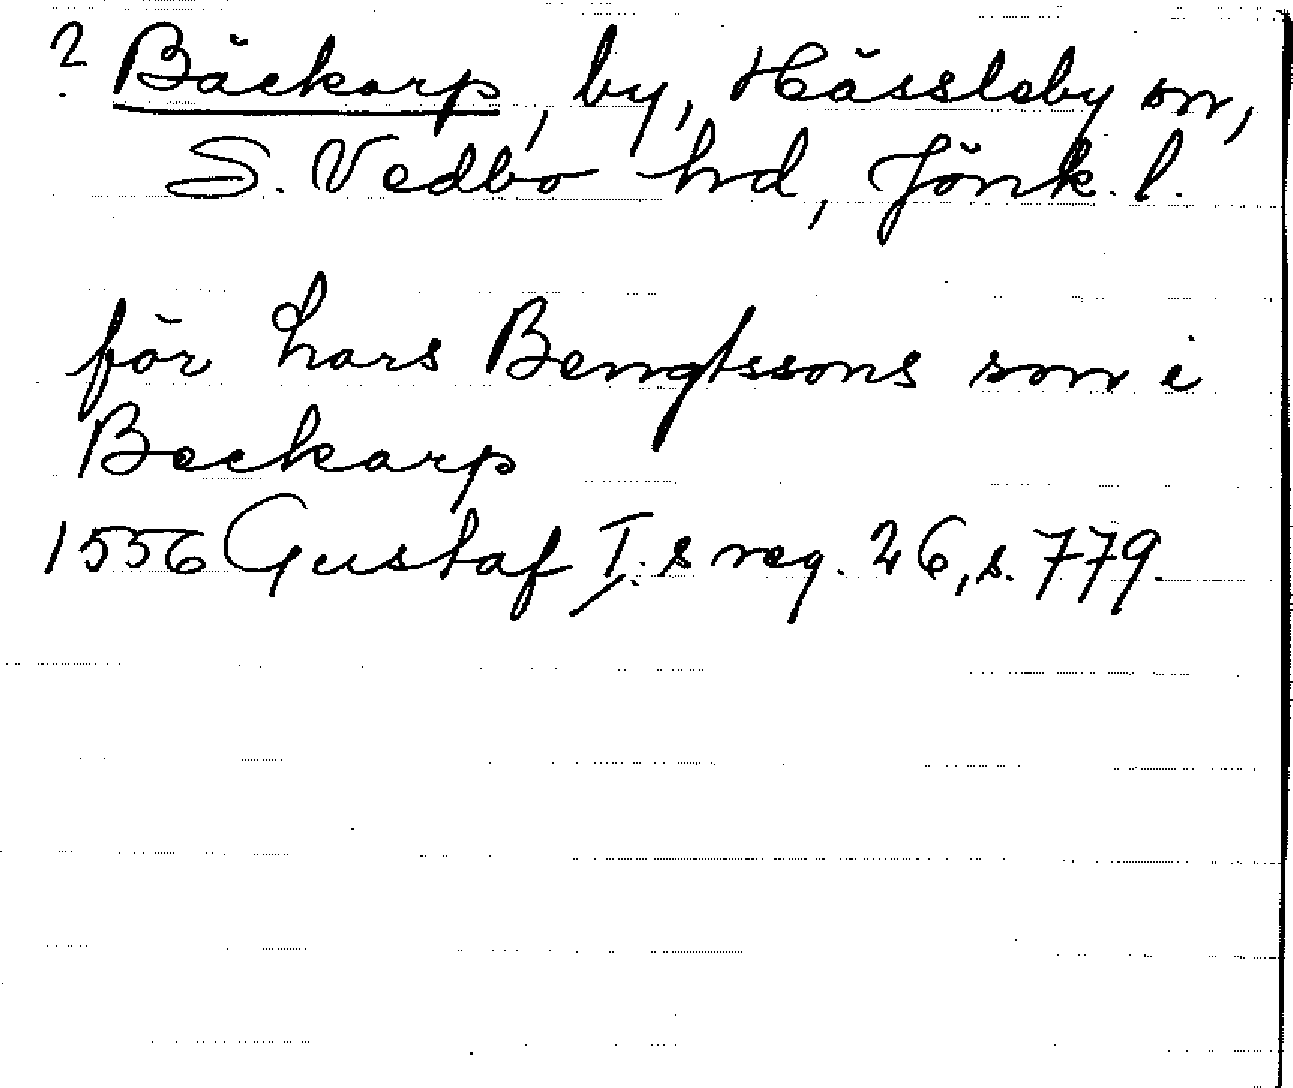 ? Bäckarp, by, Hässleby sn,
S. Vedbo hd, Jönk. l.
för Lars Bengtssons son i
Beckarp
1556 Gustaf I:s reg. 26, s. 779.